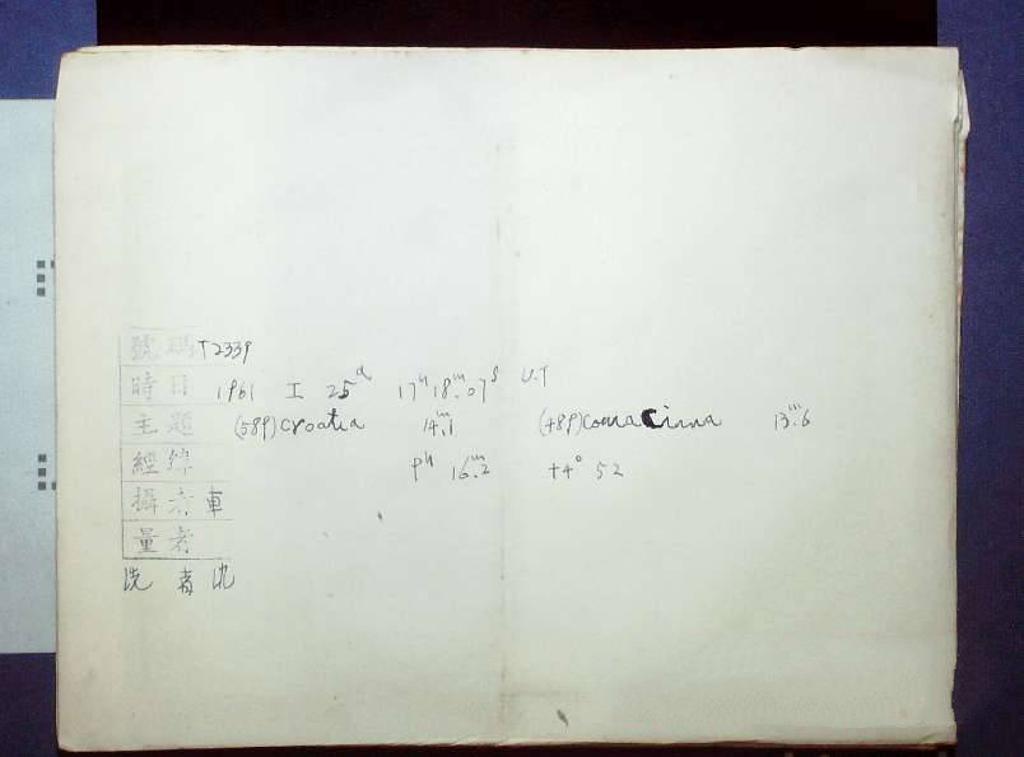 號碼 T2339
時日 1961 I 25ᵈ 17ʰ18ᵐ.07ˢ U.T
主題 (589)Croatia 14ᵐ.1 (489)Comacinna 13ᵐ.6
經緯 9ʰ 16ᵐ.2 +4° 52
攝者 車
量者
洗者 沈